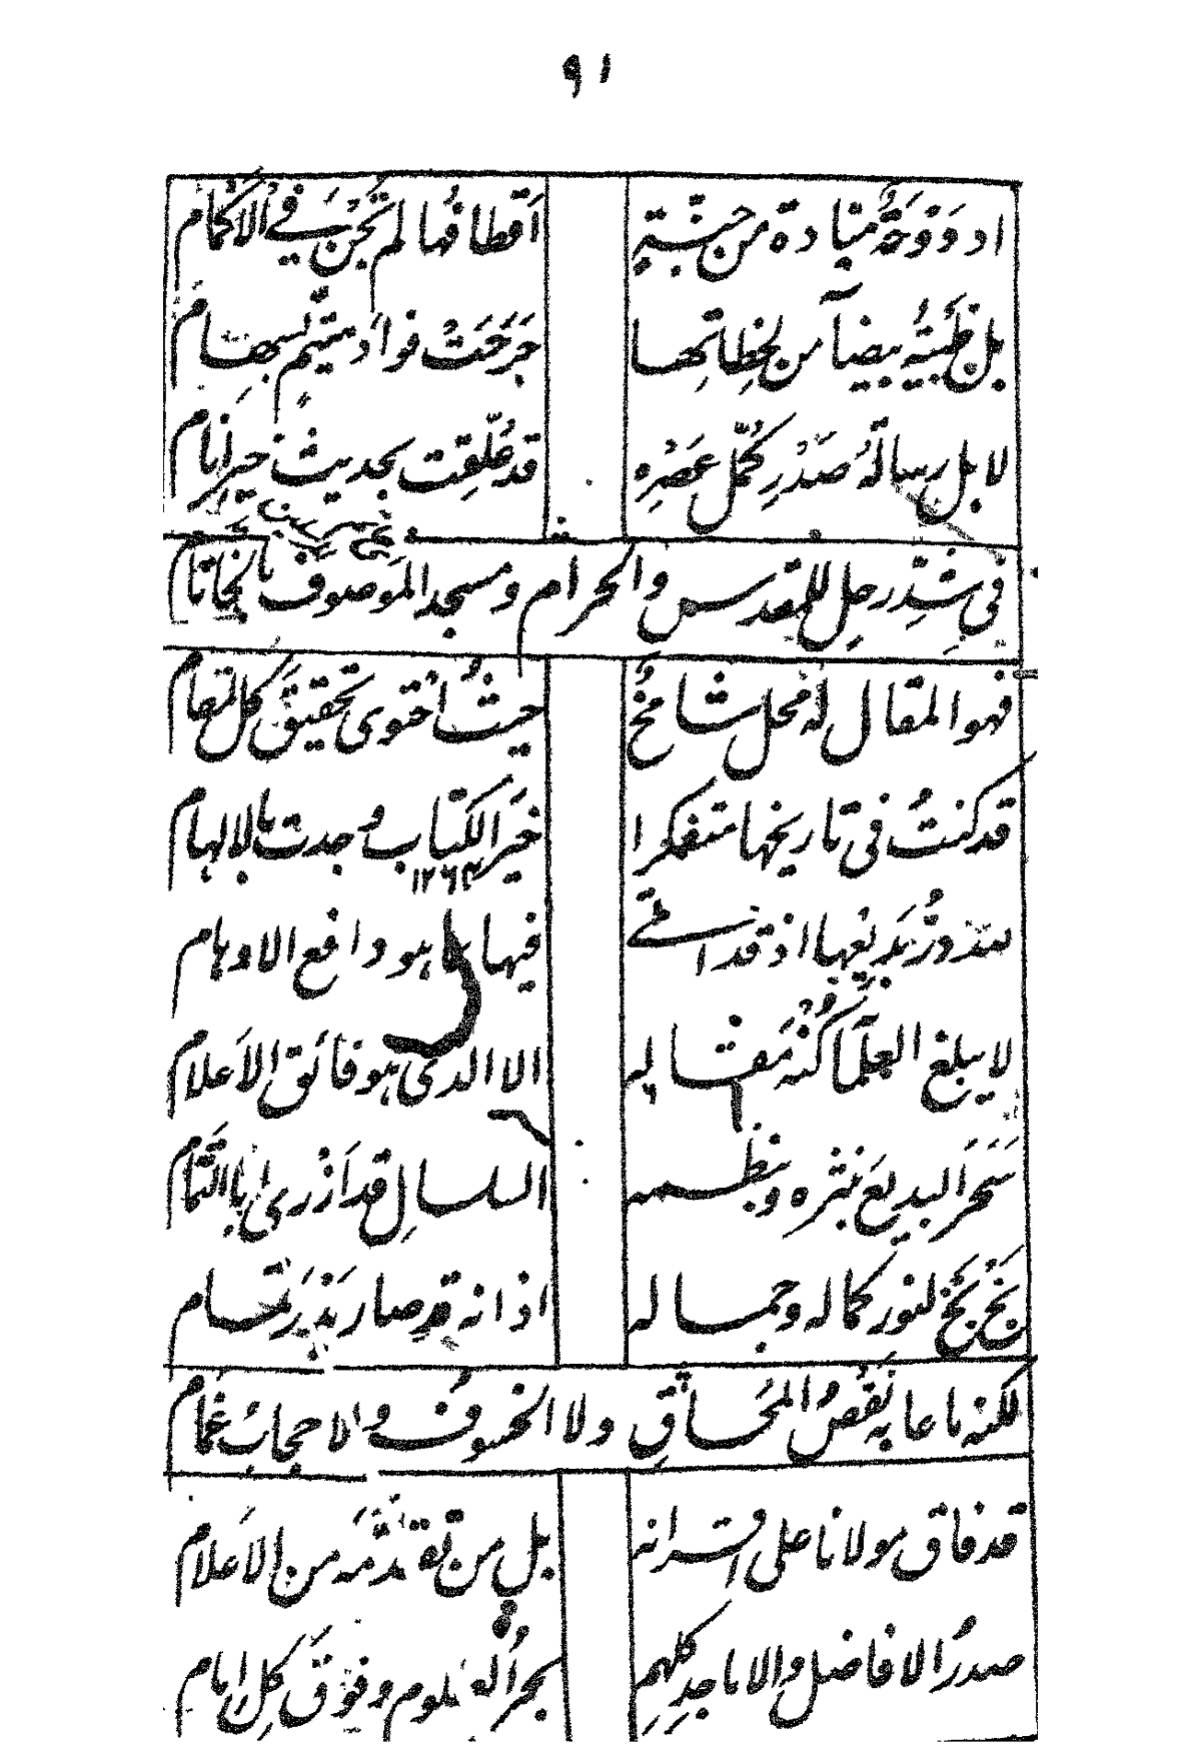 ٩١
او دَوْحَةٌ ميادة من جنّةٍ اَقطافُها لم تُجْنَ في الاكمام
بل ظَبْيَةٌ بيضآ من لحظاتِها جَرَحَتْ فواَد متيّمٍ بسِهام
لا بل رسالةُ صَدْرِ كُمّلِ عَصْرِه قد عُلّقت بحديث خير انام
في شدّ رحلٍ للمقدس والحرام ومسجد الموصوف
فهو المقال له محل شامخٌ حيثُ احتوى تحقيقَ كل مقام
قد كنتُ في تاريخها متفكرا خيرَ الكتاب وجدت بالالهام
١٢٦٤
لله دَرُّ بَديعها اذ قد اتى فيها بما هو دافع الاوهام
لا يبلغ العلمآ كُنْهَ مَقاله الا الذي هو فائق الاَعلام
سَحَرَ البديعَ بنثره وبنظمه السلسالِ قد اَزْرى
بَخْ بَخْ لنور كماله وجماله اذ انه قد صار بَدْرَ تمام
لكنه ما عابه نَقْصُ المُحَاقِ ولا الخسوفُ ولا حجابُ غَمَام
قد فاق مولانا على اقرانه بل من تقدّمَه من الاَعلام
صدرُ الافاضل والاماجدِ كلهمِ بحرُ العلوم وفوقَ كلِ امام